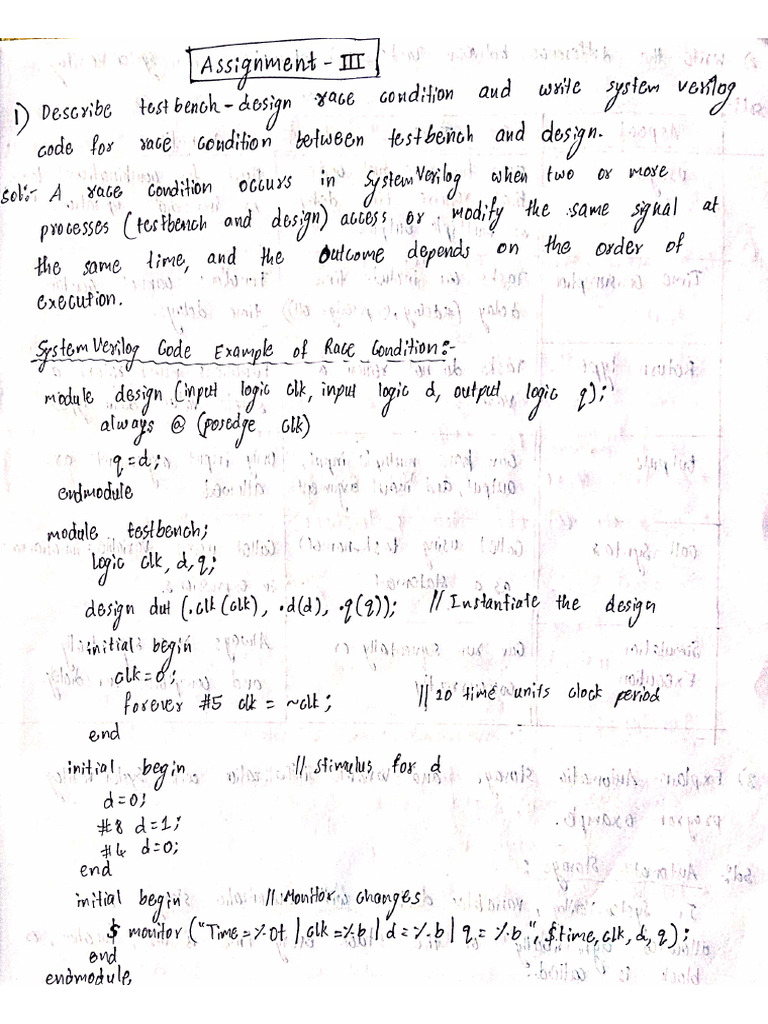 Assignment - III
1) Describe testbench-design race condition and write system verilog
code for race condition between testbench and design.
Sol:- A race condition occurs in SystemVerilog when two or more
processes (testbench and design) access or modify the same signal at
the same time, and the outcome depends on the order of
execution.
SystemVerilog Code Example of Race Condition:-
module design (input logic clk, input logic d, output logic q);
always @ (posedge clk)
q=d;
endmodule
module testbench;
logic clk, d, q;
design dut (.clk(clk), .d(d), .q(q)); // Instantiate the design
initial begin
clk=0;
forever #5 clk = ~clk; // 10 time units clock period
end
initial begin // stimulus for d
d=0;
#8 d=1;
#4 d=0;
end
initial begin // Monitor changes
$ monitor ("Time=%0t | clk=%b | d=%b | q=%b", $time, clk, d, q);
end
endmodule